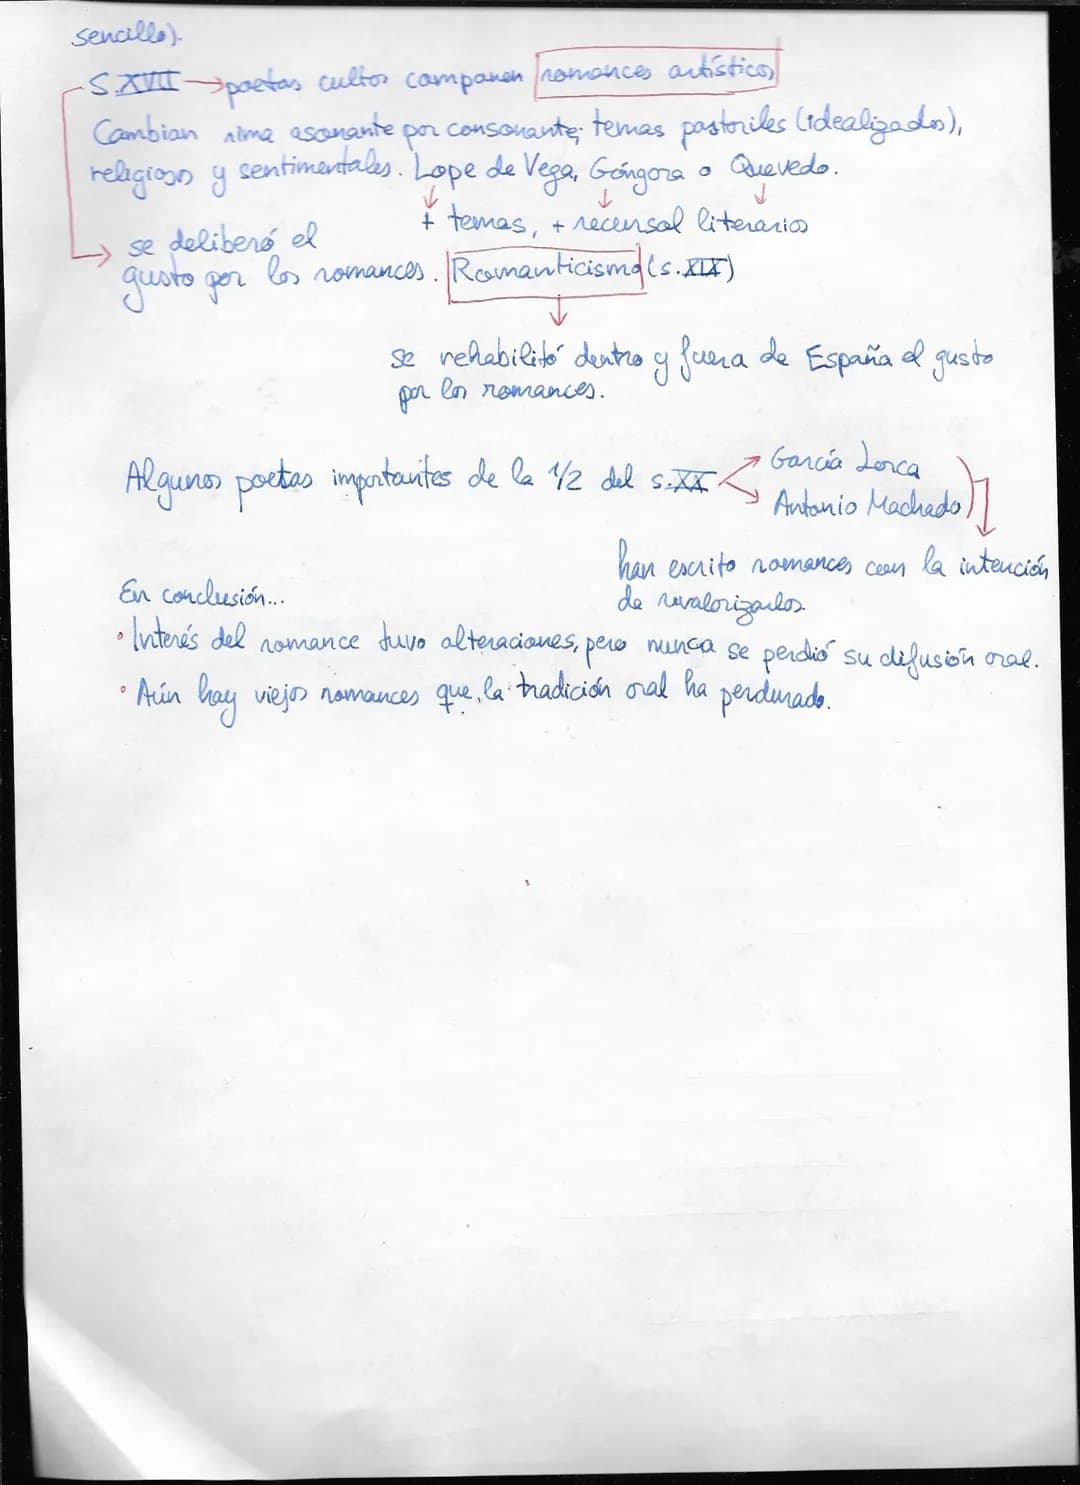 sencillo).
S.XVII → poetas cultos componen romances artísticos
Cambian rima asonante por consonante; temas pastoriles (idealizados),
religiosos y sentimentales. Lope de Vega, Góngora o Quevedo.
+ temas, + recursal literarios
se deliberó el
gusto por los romances. Romanticismo (s.XIX)
se rehabilitó dentro y fuera de España el gusto
por los romances.
Algunos poetas importantes de la 1/2 del s.XX
García Lorca
Antonio Machado
han escrito romances con la intención
de revalorizarlos.
En conclusión...
• Interés del romance tuvo alteraciones, pero nunca se perdió su difusión oral.
• Aún hay viejos romances que la tradición oral ha perdurado.